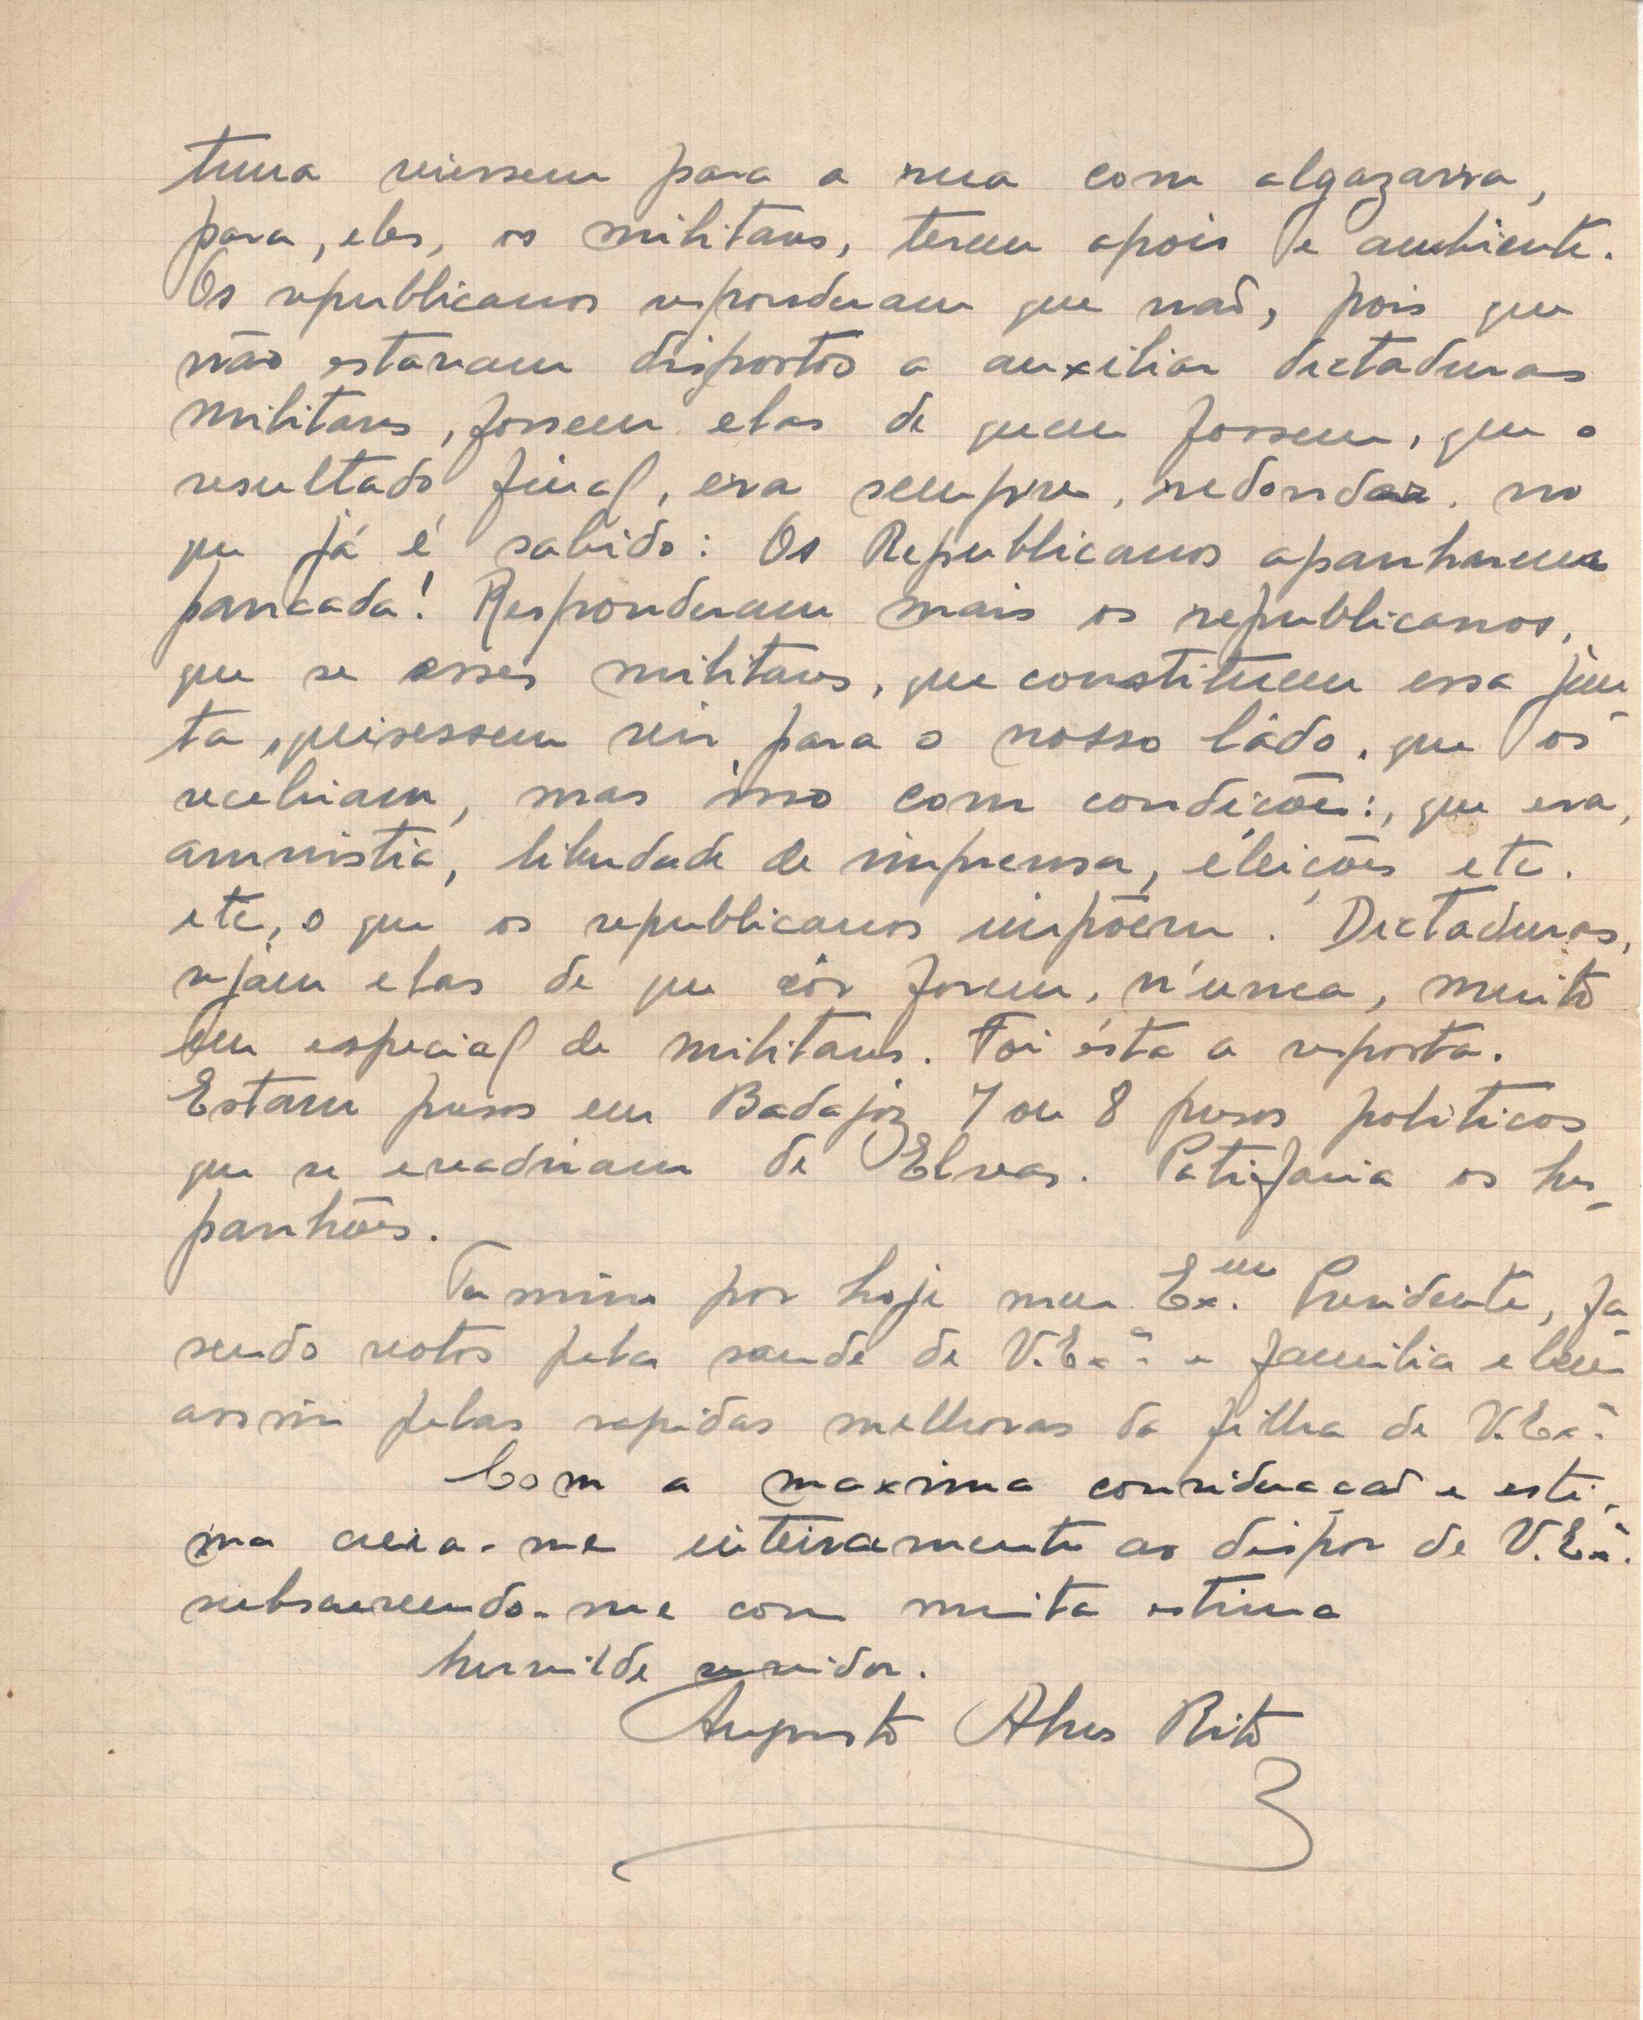 tuna viessem para a rua com algazarra,
para, eles, os militares, terem apoio e ambiente.
Os republicanos responderam que naõ, pois que
não estavam dispostos a auxiliar dictaduras
militares, fossem elas de quem fossem, que o
resultado final, era sempre, redondar no
que já é sabido: Os Republicanos apanharem
pancada! Responderam mais os republicanos,
que se esses militares, que constituem essa jun
ta, quisessem vir para o nosso ládo, que os
recebiam, mas isso com condicões:, que era,
amnistia, liberdade de imprensa, éleições etc.
etc, o que os republicanos impõem. Dictaduras,
sejam elas de que côr forem, nunca, muito
em especial de militares. Foi ésta a resposta.
Estam presos em Badajoz 7 ou 8 presos politicos
que se evadiram de Elvas. Patifaria os hes-
panhóes.
Termino por hoje meu Ex.mo Presidente, fa
sendo votos pela saude de V.Exª e familia e bem
assim pelas rapidas melhoras da filha de V.Exª
Com a maxima consideracaõ e esti-
ma creia-me inteiramente ao dispor de V.Exª.
subscrevendo-me com muita estima
humilde servidor.
Augusto Alves Rito